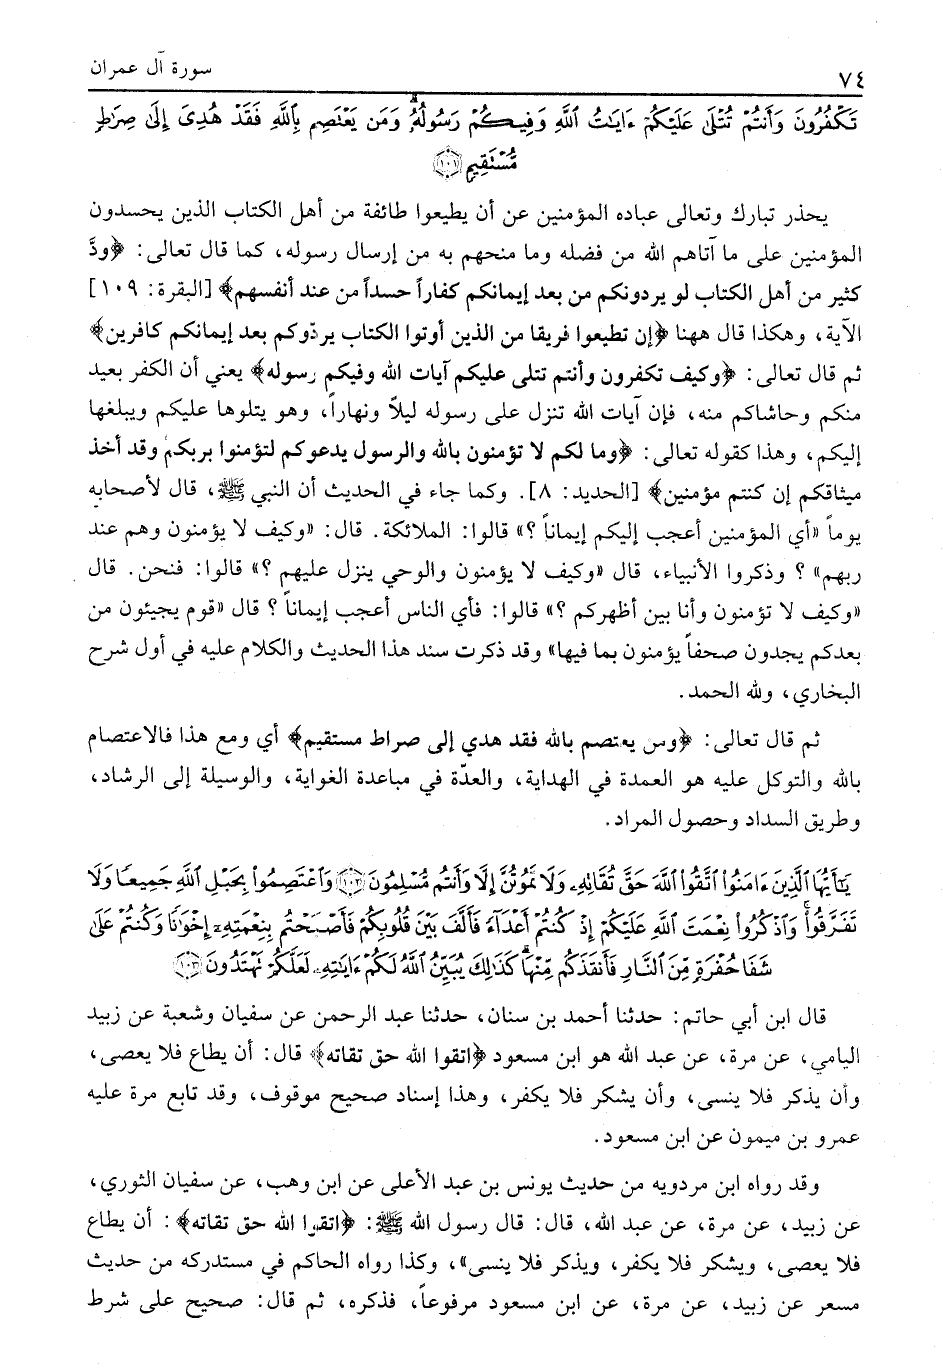 ٧٤ سورة آل عمران
تَكْفُرُونَ وَأَنتُمْ تُتْلَىٰ عَلَيْكُمْ ءَايَٰتُ ٱللَّهِ وَفِيكُمْ رَسُولُهُۥ وَمَن يَعْتَصِم بِٱللَّهِ فَقَدْ هُدِىَ إِلَىٰ صِرَٰطٍ
مُّسْتَقِيمٍ ١٠١
يحذر تبارك وتعالى عباده المؤمنين عن أن يطيعوا طائفة من أهل الكتاب الذين يحسدون
المؤمنين على ما آتاهم الله من فضله وما منحهم به من إرسال رسوله، كما قال تعالى: ﴿ودَّ
كثير من أهل الكتاب لو يردونكم من بعد إيمانكم كفاراً حسداً من عند أنفسهم﴾ [البقرة: ١٠٩]
الآية، وهكذا قال ههنا ﴿إن تطيعوا فريقا من الذين أوتوا الكتاب يردّوكم بعد إيمانكم كافرين﴾
ثم قال تعالى: ﴿وكيف تكفرون وأنتم تتلى عليكم آيات الله وفيكم رسوله﴾ يعني أن الكفر بعيد
منكم وحاشاكم منه، فإن آيات الله تنزل على رسوله ليلاً ونهاراً، وهو يتلوها عليكم ويبلغها
إليكم، وهذا كقوله تعالى: ﴿وما لكم لا تؤمنون بالله والرسول يدعوكم لتؤمنوا بربكم وقد أخذ
ميثاقكم إن كنتم مؤمنين﴾ [الحديد: ٨]. وكما جاء في الحديث أن النبي ﷺ، قال لأصحابه
يوماً «أي المؤمنين أعجب إليكم إيماناً ؟» قالوا: الملائكة. قال: «وكيف لا يؤمنون وهم عند
ربهم» ؟ وذكروا الأنبياء، قال «وكيف لا يؤمنون والوحي ينزل عليهم ؟» قالوا: فنحن. قال
«وكيف لا تؤمنون وأنا بين أظهركم ؟» قالوا: فأي الناس أعجب إيماناً ؟ قال «قوم يجيئون من
بعدكم يجدون صحفاً يؤمنون بما فيها» وقد ذكرت سند هذا الحديث والكلام عليه في أول شرح
البخاري، ولله الحمد.
ثم قال تعالى: ﴿ومن يعتصم بالله فقد هدي إلى صراط مستقيم﴾ أي ومع هذا فالاعتصام
بالله والتوكل عليه هو العمدة في الهداية، والعدّة في مباعدة الغواية، والوسيلة إلى الرشاد،
وطريق السداد وحصول المراد.
يَٰٓأَيُّهَا ٱلَّذِينَ ءَامَنُوا۟ ٱتَّقُوا۟ ٱللَّهَ حَقَّ تُقَاتِهِۦ وَلَا تَمُوتُنَّ إِلَّا وَأَنتُم مُّسْلِمُونَ ١٠٢ وَٱعْتَصِمُوا۟ بِحَبْلِ ٱللَّهِ جَمِيعًا وَلَا
تَفَرَّقُوا۟ ۚ وَٱذْكُرُوا۟ نِعْمَتَ ٱللَّهِ عَلَيْكُمْ إِذْ كُنتُمْ أَعْدَآءً فَأَلَّفَ بَيْنَ قُلُوبِكُمْ فَأَصْبَحْتُم بِنِعْمَتِهِۦٓ إِخْوَٰنًا وَكُنتُمْ عَلَىٰ
شَفَا حُفْرَةٍ مِّنَ ٱلنَّارِ فَأَنقَذَكُم مِّنْهَا ۗ كَذَٰلِكَ يُبَيِّنُ ٱللَّهُ لَكُمْ ءَايَٰتِهِۦ لَعَلَّكُمْ تَهْتَدُونَ ١٠٣
قال ابن أبي حاتم: حدثنا أحمد بن سنان، حدثنا عبد الرحمن عن سفيان وشعبة عن زبيد
اليامي، عن مرة، عن عبد الله هو ابن مسعود ﴿اتقوا الله حق تقاته﴾ قال: أن يطاع فلا يعصى،
وأن يذكر فلا ينسى، وأن يشكر فلا يكفر، وهذا إسناد صحيح موقوف، وقد تابع مرة عليه
عمرو بن ميمون عن ابن مسعود.
وقد رواه ابن مردويه من حديث يونس بن عبد الأعلى عن ابن وهب، عن سفيان الثوري،
عن زبيد، عن مرة، عن عبد الله، قال: قال رسول الله ﷺ: ﴿اتقوا الله حق تقاته﴾: أن يطاع
فلا يعصى، ويشكر فلا يكفر، ويذكر فلا ينسى»، وكذا رواه الحاكم في مستدركه من حديث
مسعر عن زبيد، عن مرة، عن ابن مسعود مرفوعاً، فذكره، ثم قال: صحيح على شرط